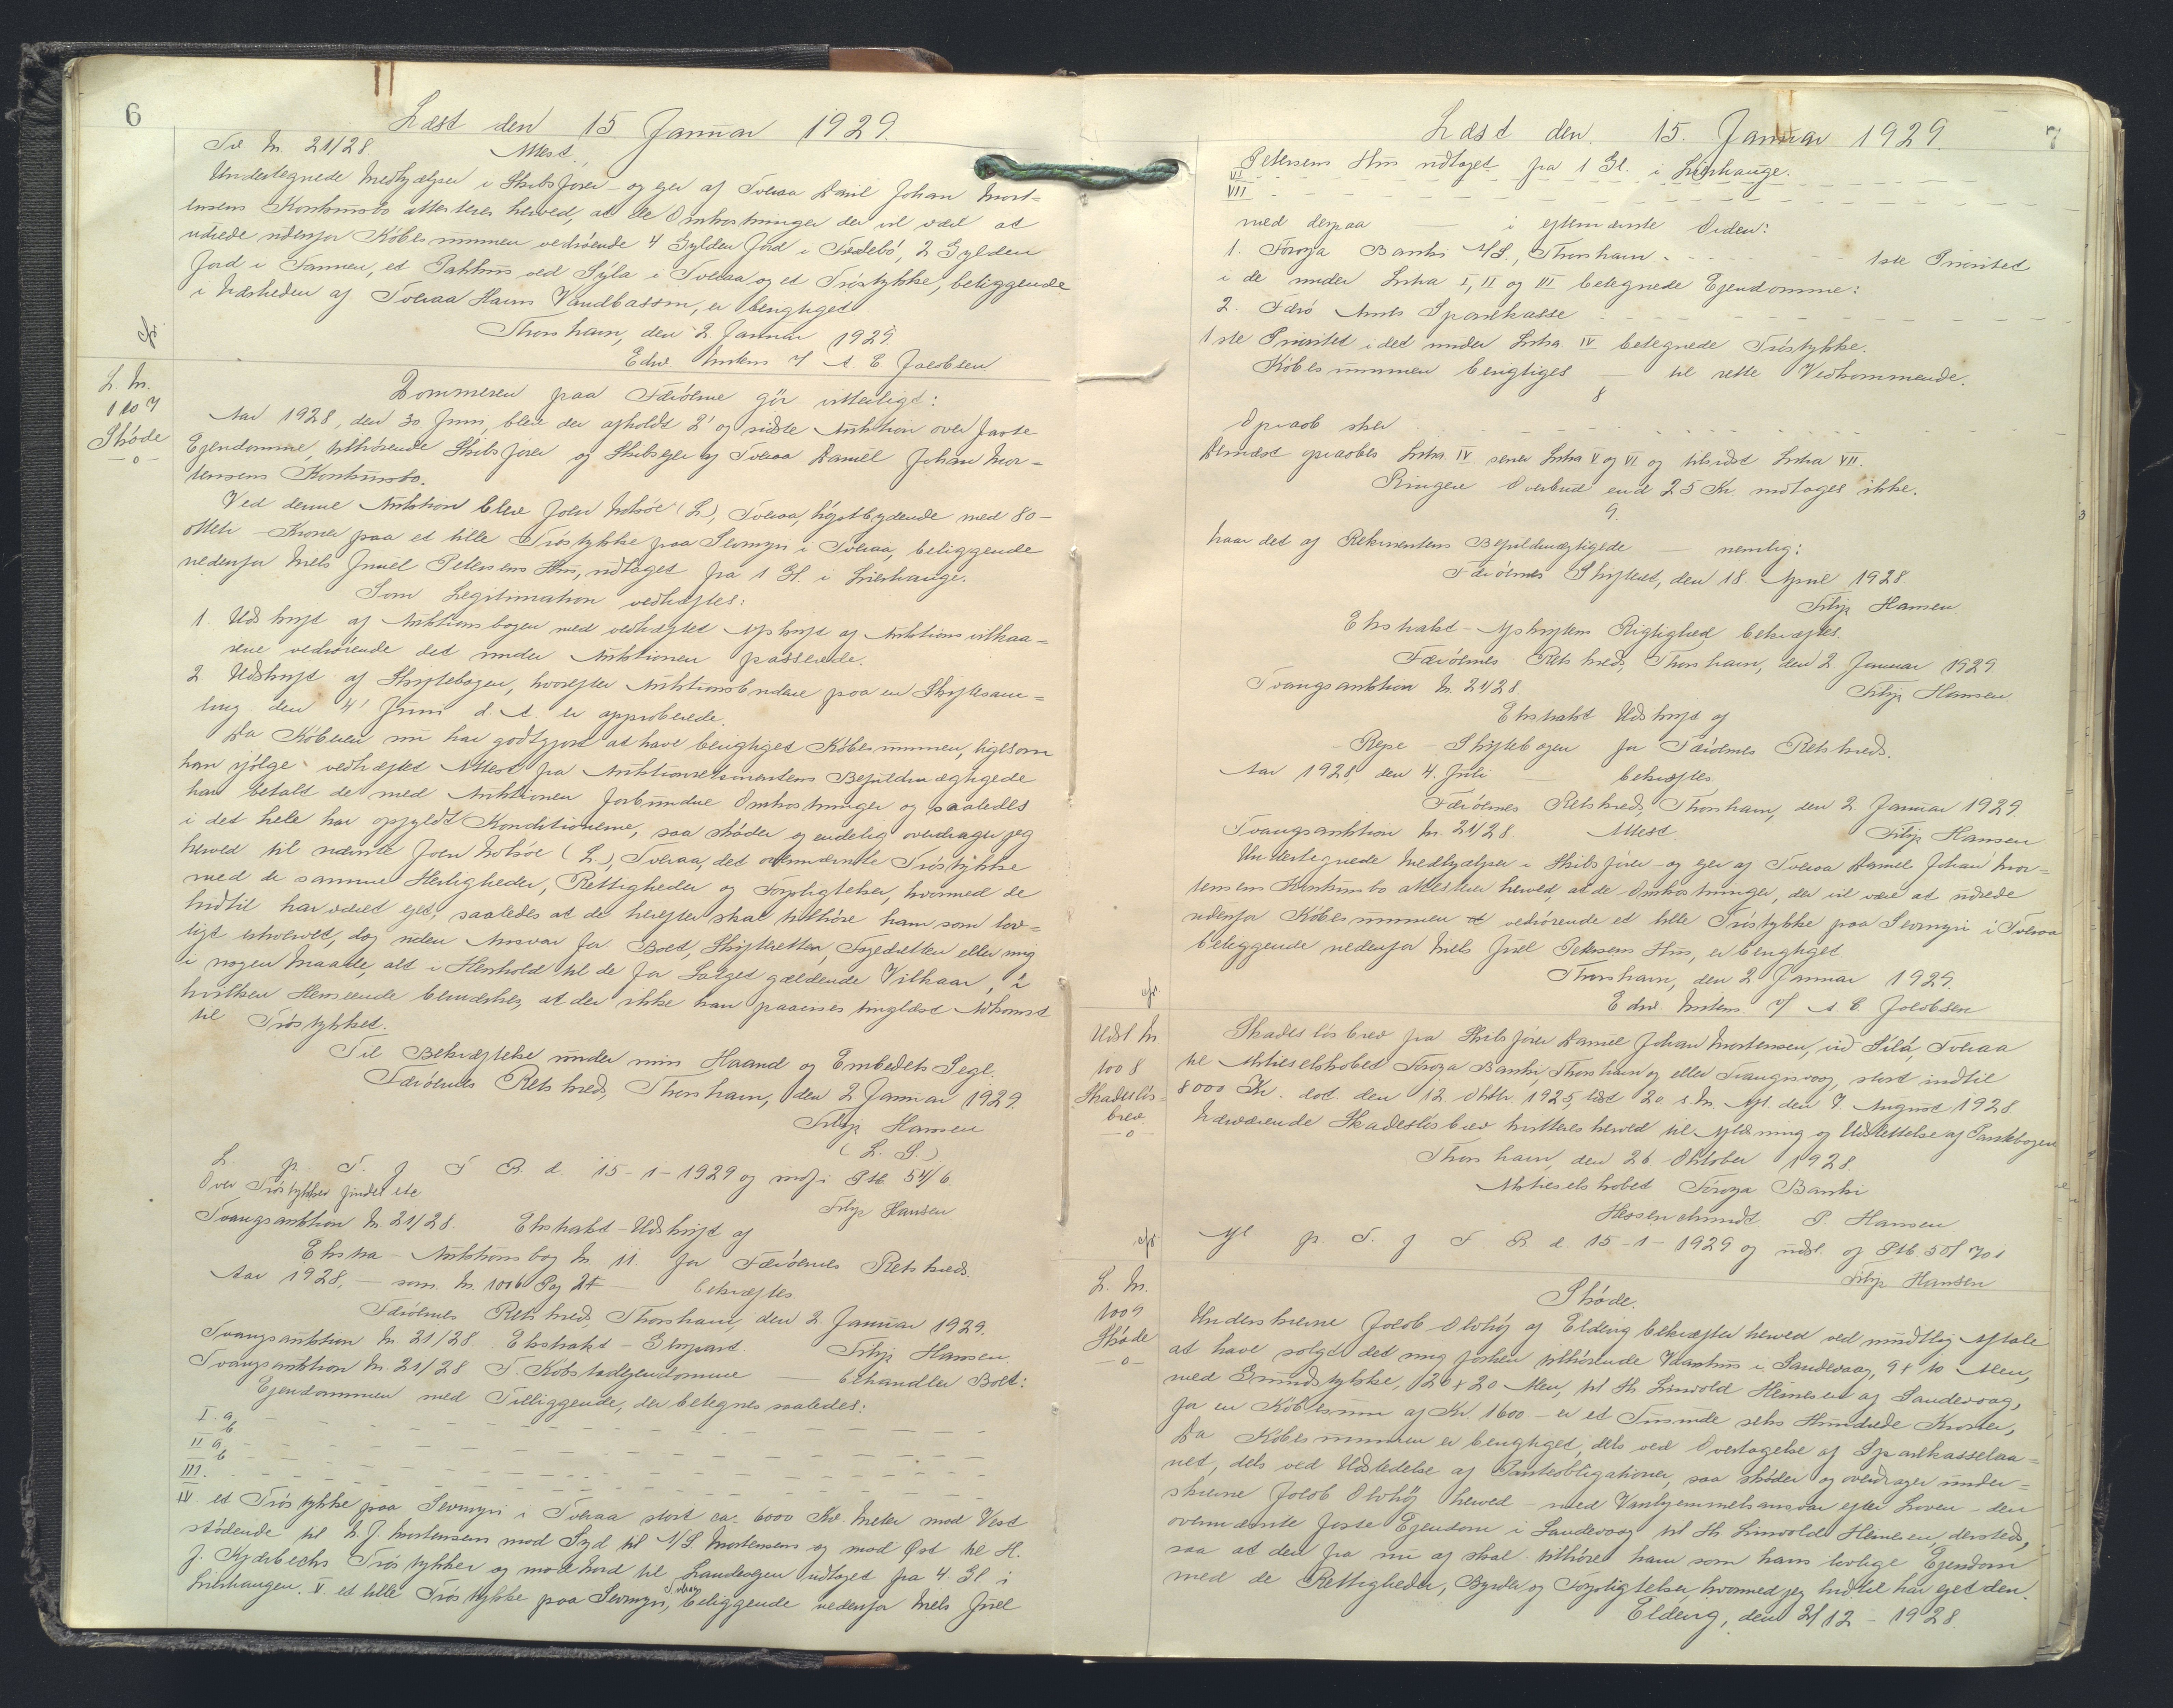 6
Læst den 15 Januar 1929.
Til Nr. 21/28. Attest.
Undertegnede Medhjælper i Skibsfører- og ejer af Tveraa Daniel Johan Mort-
ensens Konkursbo attesterer herved, at de Omkostninger der vil være at
udrede udenfor Købesummen vedrörende 4 Gylden Jord i Frodebö, 2 Gylden
Jord i Famien, et Pakhus ved Sýla i Tveraa og et Tröstykke, beliggende
i Nærheden af Tveraa Havns Vandbassin, er berigtiget.
Thorshavn, den 2 Januar 1929.
Edw. Mitens / A. E. Jacobsen
L. Nr.
1007
Skøde
-o-
Dommeren paa Færöerne gör vitterligt:
Aar 1928, den 30 Juni, blev der afholdt 2' og sidste Auktion over faste
Ejendomme, tilhørende Skibsfører og Skibsejer af Tveraa Daniel Johan Mor-
tensens Konkursbo.
Ved denne Auktion blev Joen Holsöe (L.), Tveraa, höjstbydende med 80-
otteti Kroner paa et lille Tröstykke paa Sevmyri i Tveraa, beliggende
nedenfor Niels Juuel Petersens Hus, udtaget fra 1 Gl. i Lierhauge.
Som Legitimation vedhæftes:
1. Udskrift af Auktionsbogen med vedhæftet Afskrift af Auktionsvilkaa-
rene vedrörende det under Auktionen passerede.
2 Udskrift af Skiftebogen, hvorefter Auktionsbudene paa en Skiftesam-
ling den 4' Juni d. A. er approberede.
Da Köberen nu har godtgjort at have berigtiget Købesummen, ligesom
han ifölge vedhæftet Attest fra Auktionsrekvirentens Befuldmægtigede
har betalt de med Auktionen forbundne Omkostninger og saaledes
i det hele har opfyldt Konditionerne, saa skøder og endelig overdrager jeg
herved til nævnte Joen Holsöe (L.), Tveraa, det ovennævnte Tröstykke
med de samme Herligheder, Rettigheder og Forpligtelser, hvormed de
hidtil har været ejet, saaledes at de herefter skal tilhöre ham som lov-
ligt erhvervet, dog uden Ansvar for Boet, Skifteretten, Fogedretten eller mig
i nogen Maade, alt i Henhold til de for Salget gældende Vilkaar, i
hvilken Henseende bemærkes, at der ikke kan paavises tinglæst Adkomst
til Tröstykket.
Til Bekræftelse under min Haand og Embedets Segl.
Færöernes Retskreds, Thorshavn, den 2 Januar 1929.
Filip Hansen
(L. S.)
L p. T. f F R. d. 15-1-1929 og indf. i Ptb. 54/6.
Over Tröstykket findes ikke
Filip Hansen
Tvangsauktion Nr. 21/28. Ekstrakt-Udskrift af
Ekstra-Auktionsbog Nr. 11. for Færöernes Retskreds.
Aar 1928, — som Nr. 1006 Pag 2 — bekræftes.
Færöernes Retskreds, Thorshavn, den 2 Januar 1929.
Tvangsauktion Nr. 21/28. Ekstrakt-Genpart. Filip Hansen.
Tvangsauktion Nr. 21/28 T. Købstadejendomme — behandler Boet:
Ejendommen med Tilliggende, der betegnes saaledes:
I. a,
b
II a,
b
III.
IV. et Tröstykke paa Sevmyri i Tveraa stort ca. 6000 Kv. Meter mod Vest
stödende til D. J. Mortensens mod Syd til A/S. Mortensens og mod Øst til H.
J. Kjærbechs Tröstykker og mod Nord til Landevejen udtaget fra 4 Gl i
Lierhaugen. V. et lille Tröstykke paa Sevmyri, Tveraa, beliggende nedenfor Niels Juel
Læst den. 15. Januar 1929. 7
Petersens Hus udtaget fra 1 Gl. i Lierhauge.
VI
VII
med derpaa — i eftern ævnte Orden:
1. Föroya Banki A/S., Thorshavn. 1ste Prioritet
i de under Litra I, II og III betegnede Ejendomme:
2. Færö Amts Sparekasse
1ste Prioritet i det under Litra IV betegnede Tröstykke.
Købesummen berigtiges — til rette Vedkommende.
8
Opraab sker
Dernæst opraabes Litra IV senere Litra V og VI og tilsidst Litra VII.
Ringere Overbud end 25 Kr. modtages ikke.
9.
har det af Rekvirentens Befuldmægtigede — nemlig:
Færöernes Skifteret, den 18. April 1928.
Filip Hansen.
Ekstrakt-Afskriftens Rigtighed bekræftes.
Færöernes Retskreds, Thorshavn, den 2 Januar 1929.
Tvangsauktion Nr. 21/28. Filip Hansen.
Ekstrakt Udskrift af
Repe-Skiftebogen for Færöernes Retskreds.
Aar 1928, den 4. Juli — bekræftes.
Færöernes Retskreds, Thorshavn, den 2 Januar 1929.
Tvangsauktion Nr. 21/28. Attest. Filip Hansen
Undertegnede Medhjælper i Skibsfører- og ejer af Tveraa Daniel Johan Mor-
tensens Konkursbo attesterer herved, at de Omkostninger, der vil være at udrede
udenfor Købesummen vedrörende et lille Tröstykke paa Sevmyri i Tveraa
beliggende nedenfor Niels Juel Petersens Hus, er berigtiget.
Thorshavn, den 2 Januar 1929.
Edw. Mitens. / A. E. Jacobsen
Udsl Nr
1008
Skadeslös-
brev
-o-
Skadeslösbrev fra Skibsfører Daniel Johan Mortensen, við Sílá, Tveraa
til Aktieselskabet Föroya Banki, Thorshavn og eller Trangisvaag, stort indtil
8000 Kr. dat. den 12 Oktbr. 1925, læst 20. s. M. Afl. den 7. August 1928
Nærværende Skadeslösbrev kvitteres herved til Aflysning og Udslettelse af Pantebogen
Thorshavn, den 26 Oktober 1928.
Aktieselskabet Föroya Banki
Hessenschmidt P. Hansen
Afl p. T. f F. R. d. 15-1-1929 og udsl. af Ptb. 50/701
Filip Hansen
L. Nr.
1009
Skøde
-o-
Skøde.
Underskrevne Jacob Olvhöj af Elduvig bekræfter herved ved mundtlig Aftale
at have solgt det mig forhen tilhörende Vaanhus i Sandevaag, 9 x 10 Alen,
med Grundstykke, 20 x 20 Alen, til Hr. Limvold Heinesen af Sandevaag,
for en Købesum af Kr. 1600 - er et Tusinde seks Hundrede Kroner,
Da Købesummen er berigtiget, dels ved Overtagelse af Sparekasselaa-
net, dels ved Udstedelse af Panteobligationer, saa skøder og overdrager under-
skrevne Jacob Olvhöj herved - med Vanhjemmelsansvar efter Loven - den
ovennævnte faste Ejendom i Sandevaag til Hr. Limvold Heinesen, dersteds,
saa at den fra nu af skal tilhöre ham som hans lovlige Ejendom
med de Rettigheder, Byrder og Forpligtelser, hvormed jeg hidtil har ejet den.
Elduvig, den 2/12 - 1928.